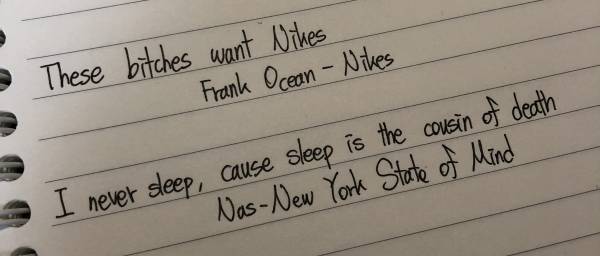 These bitches want Nikes
Frank Ocean - Nikes
I never sleep, cause sleep is the cousin of death
Nas - New York State of Mind